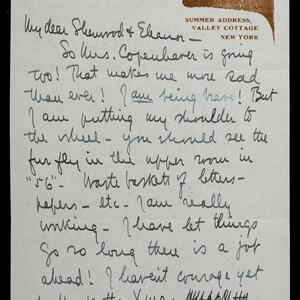 SUMMER ADDRESS,
VALLEY COTTAGE
NEW YORK
My dear Sherwood & Eleanor –
So Mrs. Copenhaver is going
too! That makes me more sad
than ever! I am being have! But
I am putting my shoulder to
the wheel – you should see the
fur fly in the upper room in
"56" – Waste baskets of letters –
papers – etc – I am really
working – I have let things
go so long there is a job
ahead! I haven't courage yet